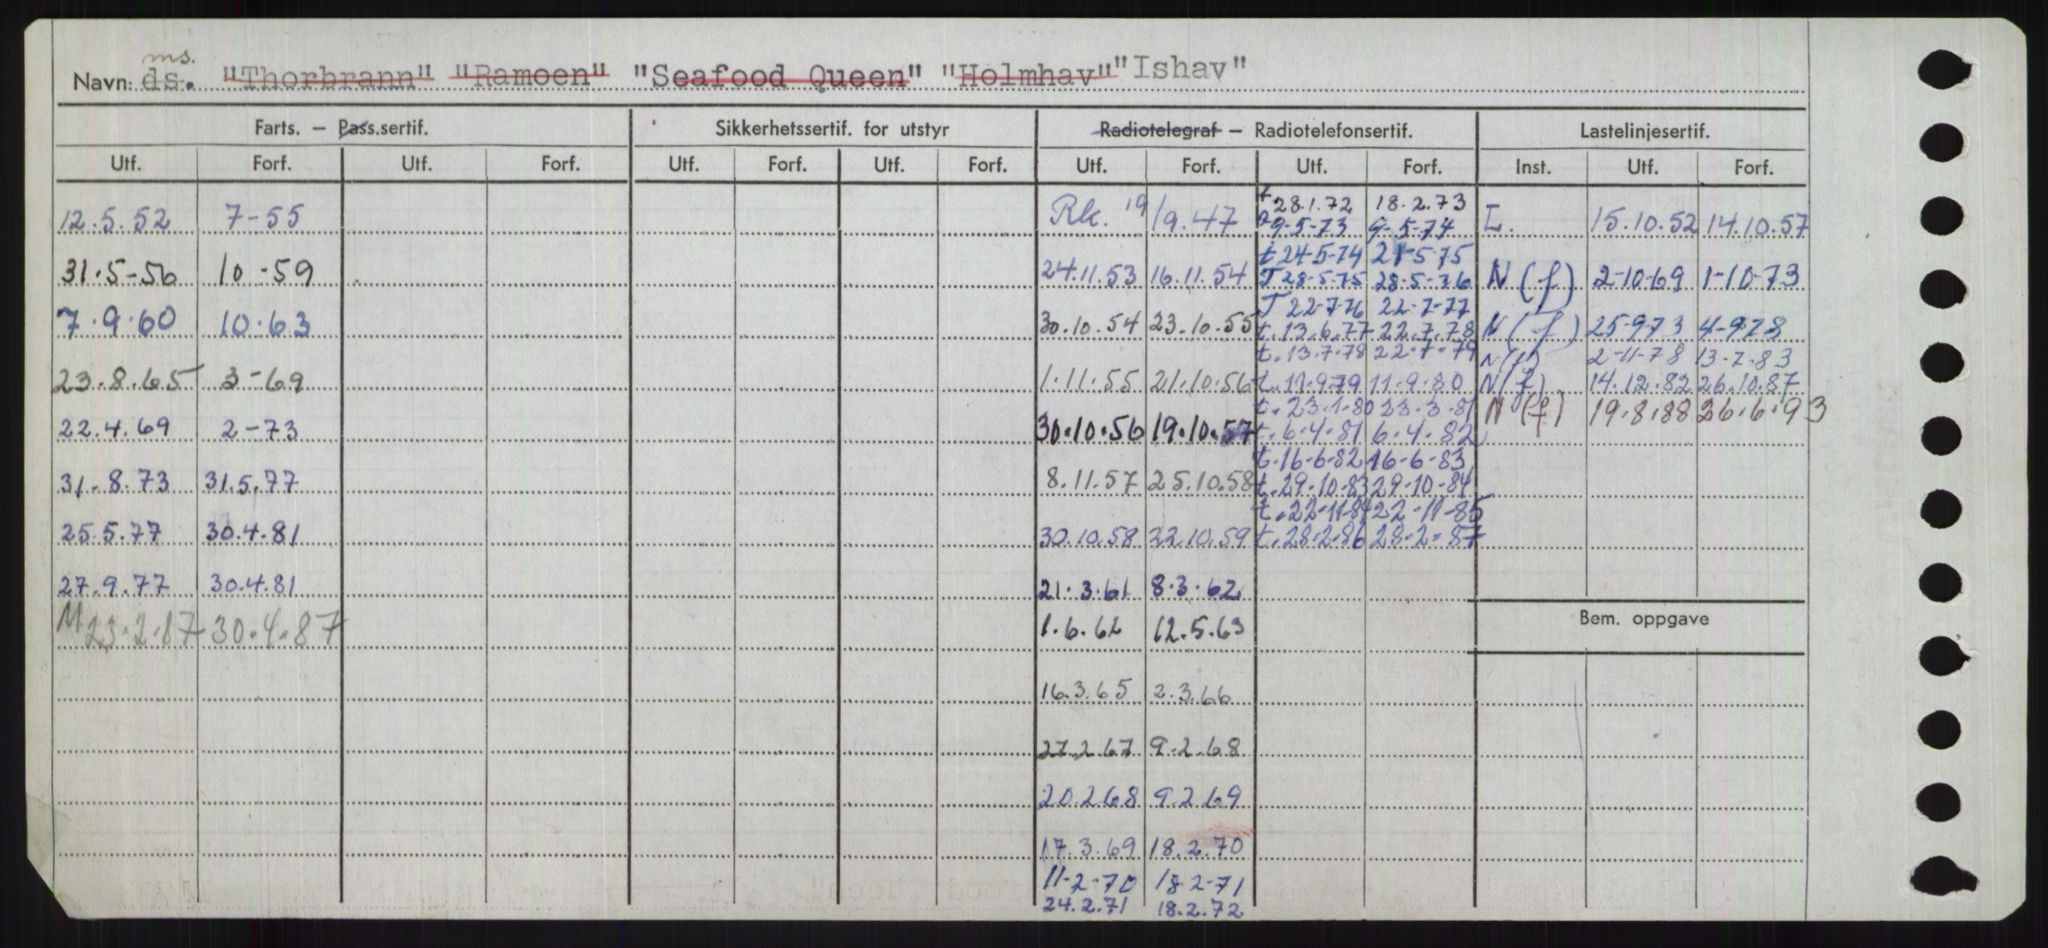 ms.
Navn: ds. "Thorbrann" "Ramoen" "Seafood Queen" "Holmhav" "Ishav"
Farts. – Pass.sertif. Sikkerhetssertif. for utstyr Radiotelegraf – Radiotelefonsertif. Lastelinjesertif.
Utf. Forf. Utf. Forf. Utf. Forf. Utf. Forf. Utf. Forf. Utf. Forf. Inst. Utf. Forf.
t 28.1.72 18.2.73
12.5.52 7-55 Rk. 19/9.47 9-5-73 9-5-74 L. 15.10.52 14.10.57
t 24-5-74 21-5-75
31.5-56 10-59 24.11.53 16.11.54 T 28-5-75 28-5-76 N (f) 2-10-69 1-10-73
T 22-7-76 22-7-77
7.9.60 10.63 30.10.54 23.10.55 t. 13.6.77 22.7.78 N (f) 25-9-73 4-9-78
t. 13.7-78 22-7-79 N(f) 2-11-78 13-7-83
23.8.65 3-69 1.11.55 21.10.56 t. 11-9-79 11-9-80 N(f) 14.12.82 26.10.87
t. 23-1-80 23-3-81 N (f) 19.8.88 26.6.93
22.4.69 2-73 30.10.56 19.10.57 t. 6.4.81 6.4.82
t. 16-6-82 16-6-83
31.8.73 31.5.77 8.11.57 25.10.58 t. 29-10-83 29-10-84
t. 22-11-84 22-11-85
25.5.77 30.4.81 30.10.58 22.10.59 t. 28-2-86 28-2-87
27.9.77 30.4.81 21.3.61 8.3.62
M 23.2.87 30.4.87 1.6.62 12.5.63 Bem. oppgave
16.3.65 2.3.66
27.2.67 9.2.68
20.2.68 9.2.69
17.3.69 18.2.70
11-2-70 18-2-71
24.2.71 18.2.72